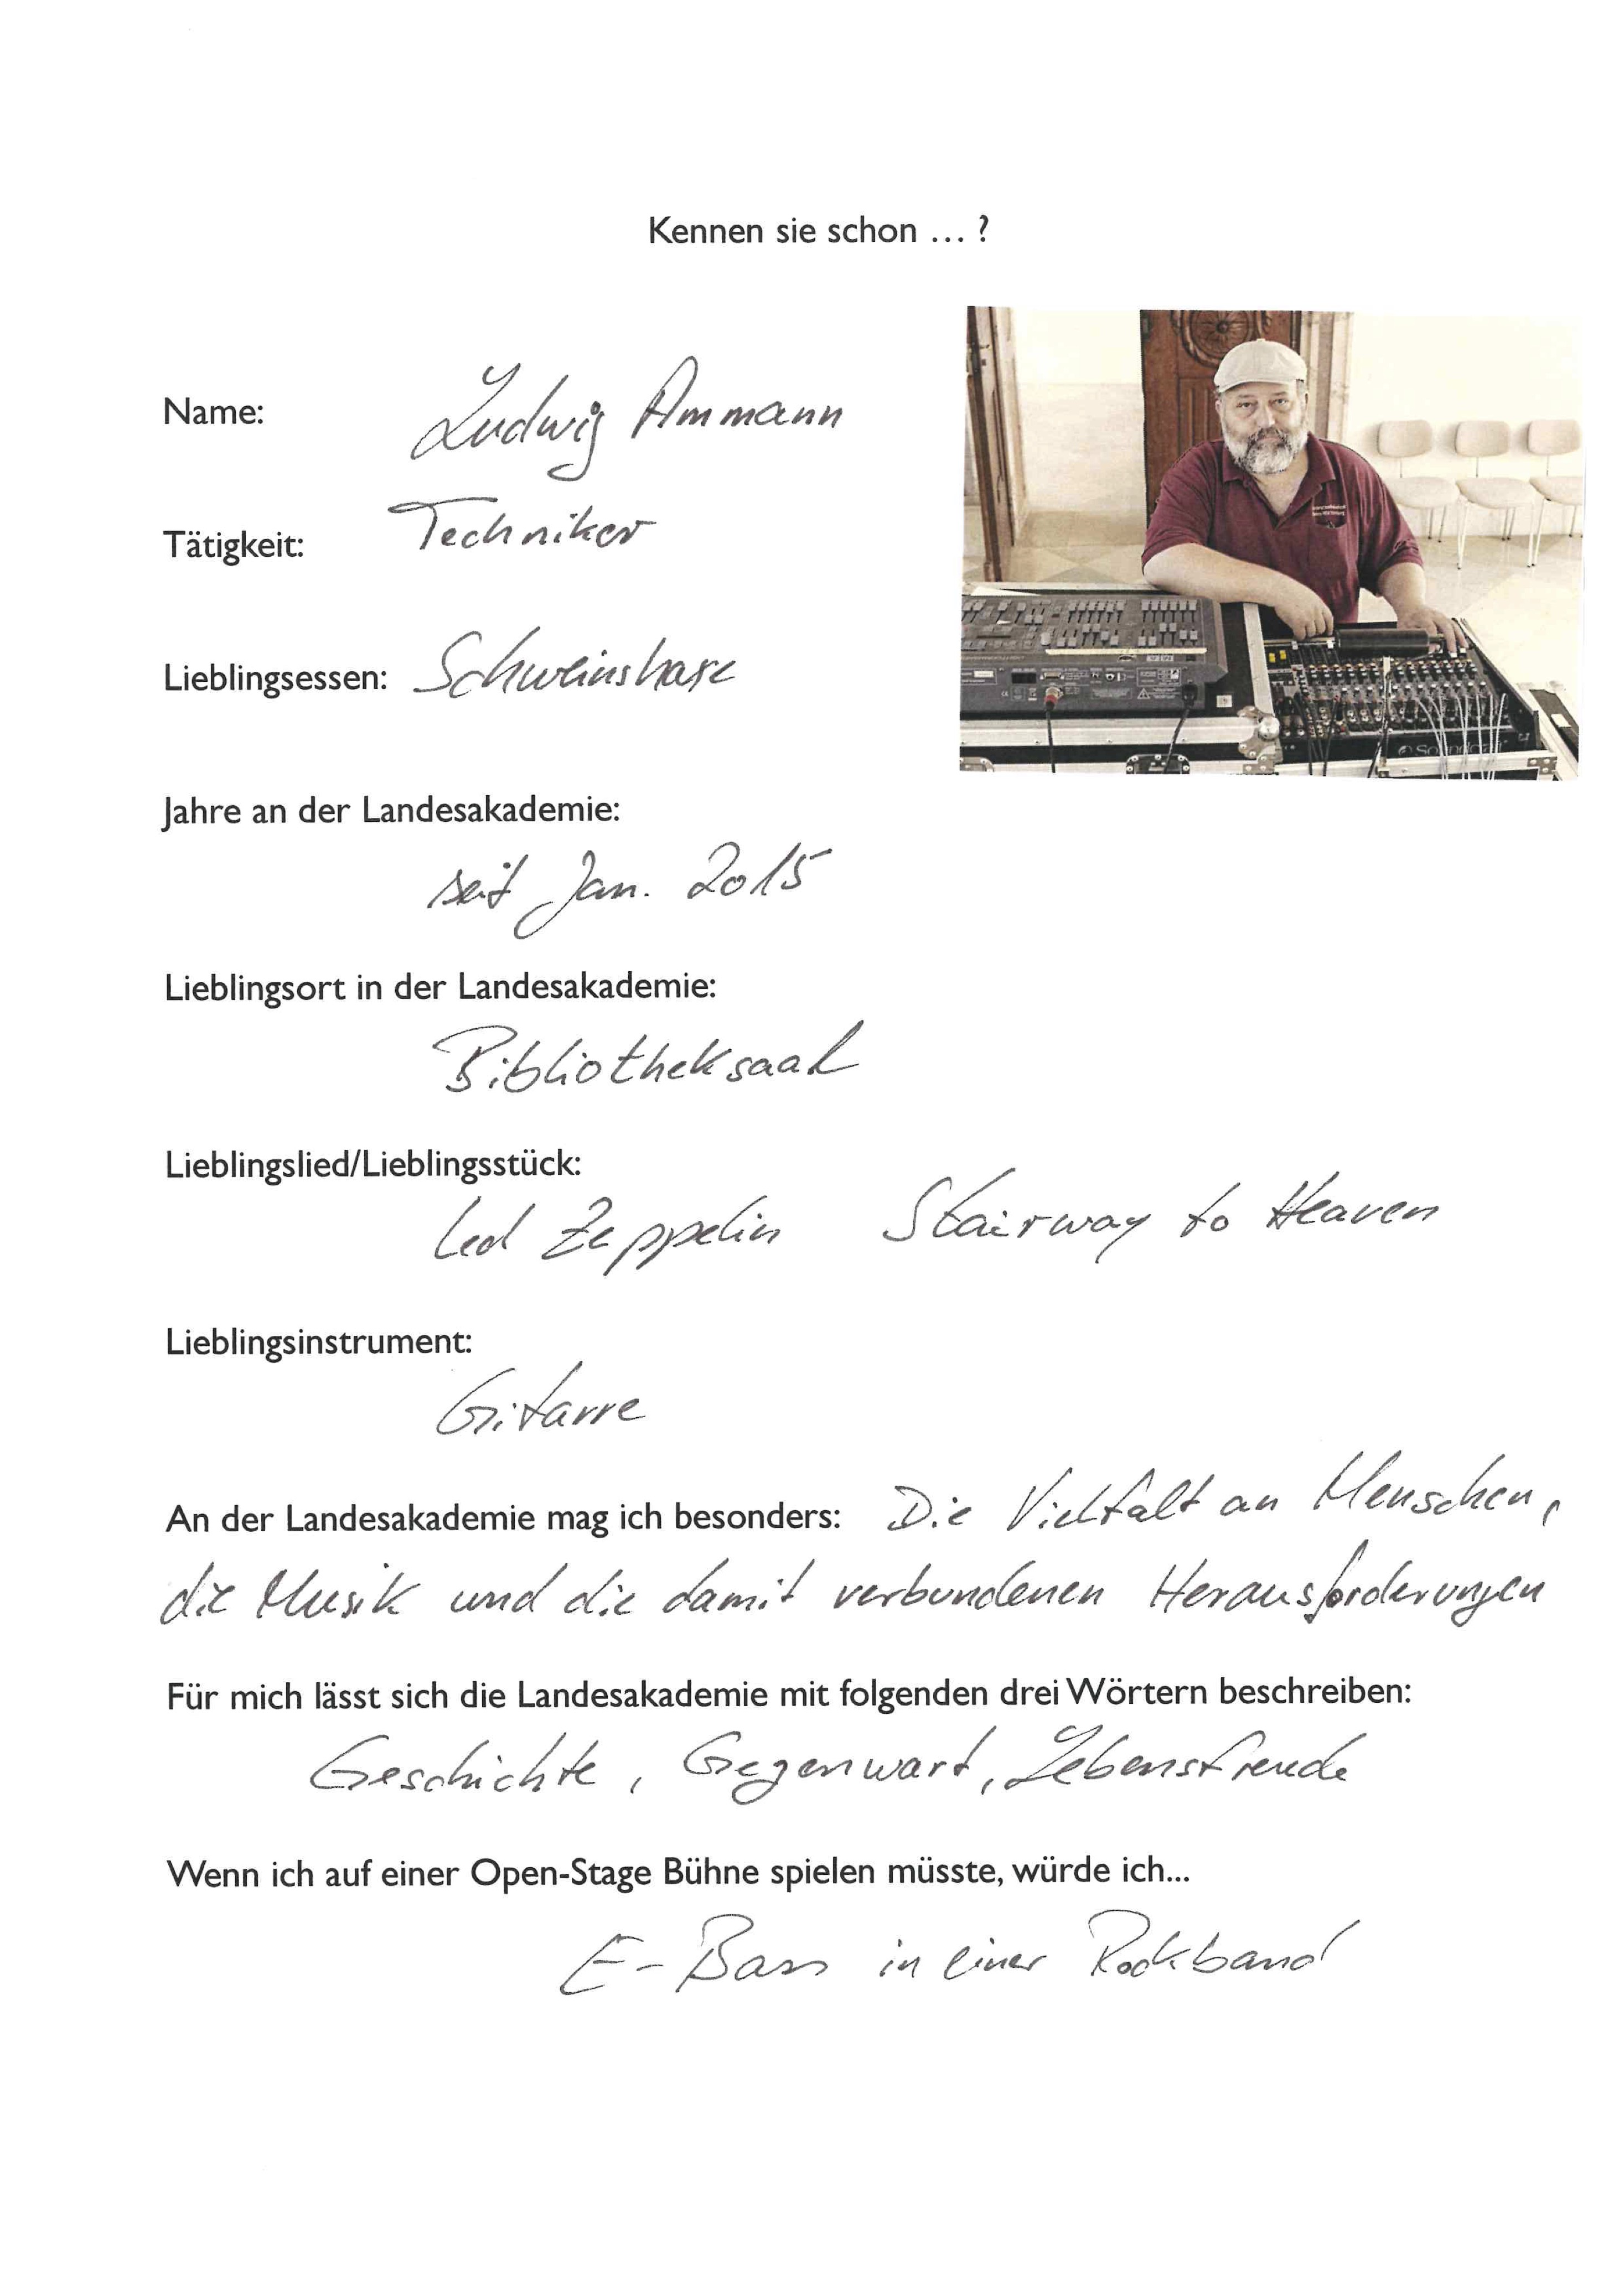 Kennen sie schon … ?
Name: Ludwig Ammann
Tätigkeit: Techniker
Lieblingsessen: Schweinshaxe
Jahre an der Landesakademie:
seit Jan. 2015
Lieblingsort in der Landesakademie:
Bibliotheksaal
Lieblingslied/Lieblingsstück:
Led Zeppelin Stairway to Heaven
Lieblingsinstrument:
Gitarre
An der Landesakademie mag ich besonders: Die Vielfalt an Menschen,
die Musik und die damit verbundenen Herausforderungen
Für mich lässt sich die Landesakademie mit folgenden drei Wörtern beschreiben:
Geschichte, Gegenwart, Lebensfreude
Wenn ich auf einer Open-Stage Bühne spielen müsste, würde ich...
E-Bass in einer Rockband